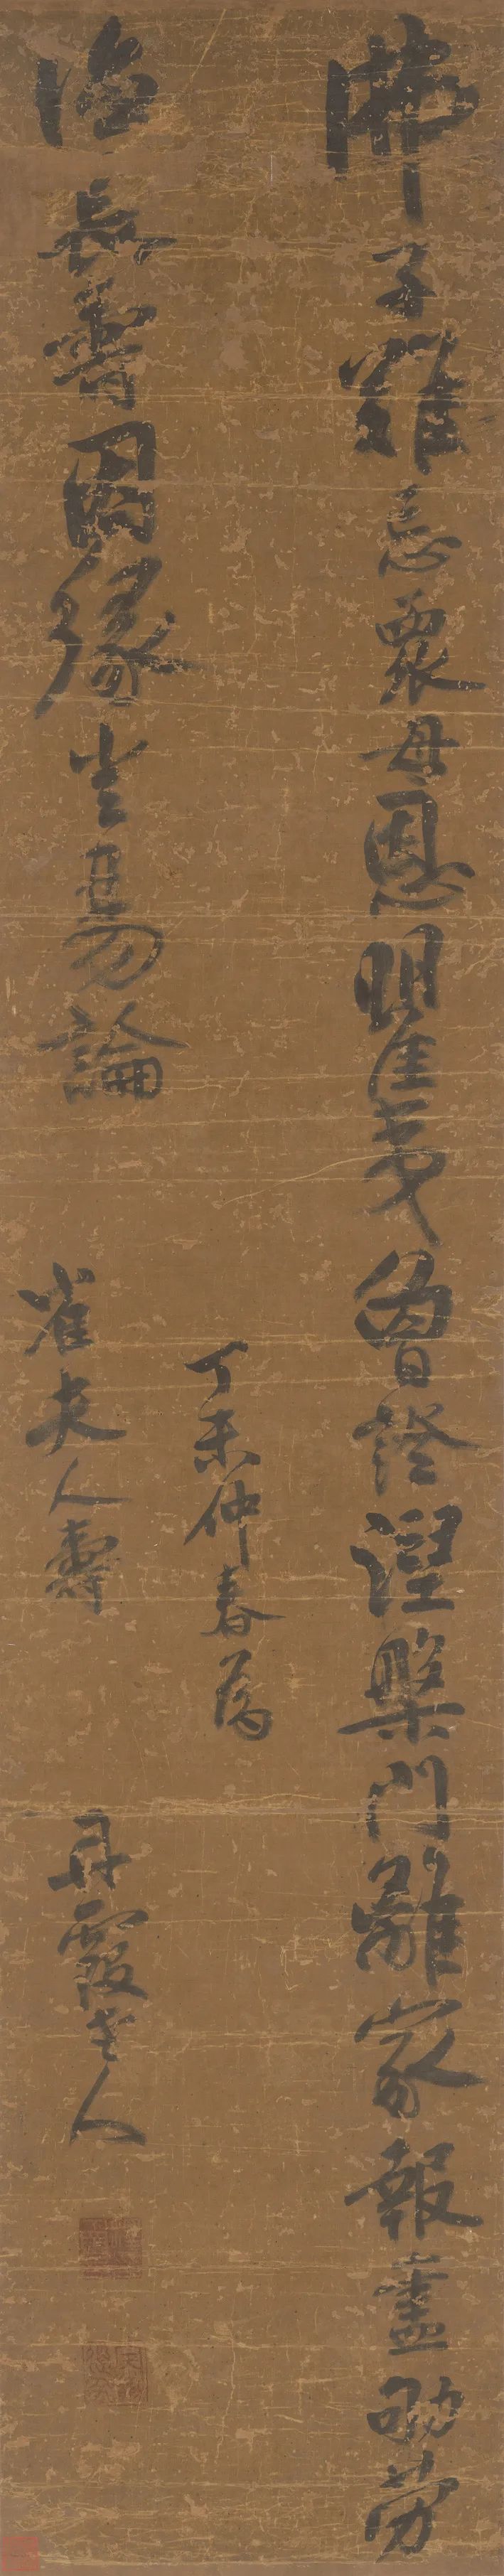 佛子難忘眾母恩瞿夷曾證涅槃門離家報盡劬勞
長壽因緣豈易論
丁未仲春為
崔夫人壽
丹霞老人